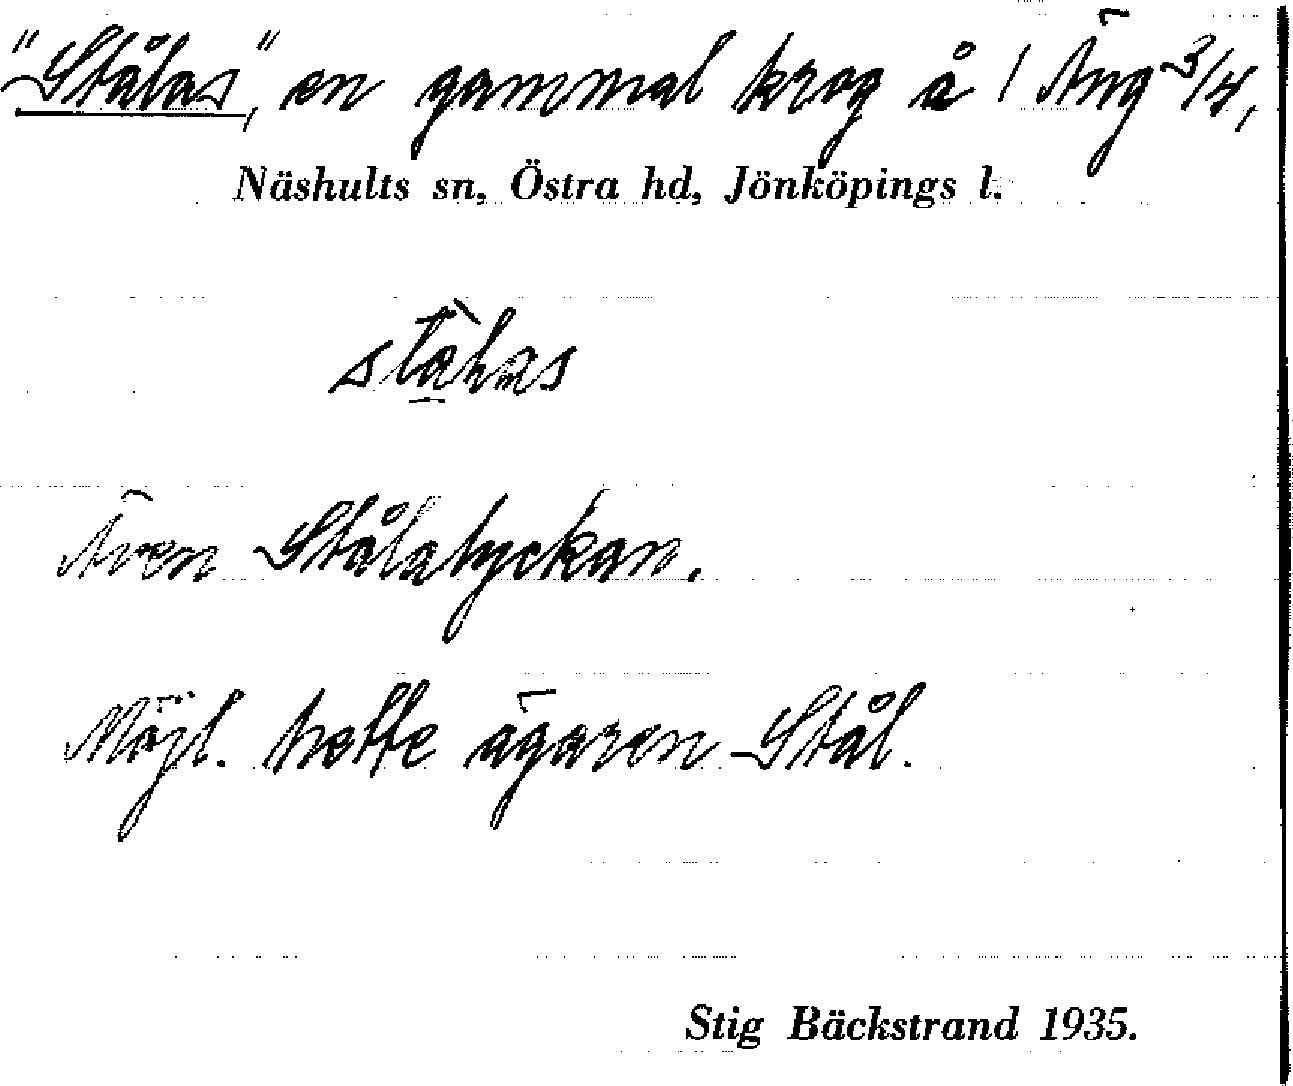 "Stålas", en gammal krog å 1 Äng 3/4,
Näshults sn, Östra hd, Jönköpings l.
Även Stålatyckan.
Möjl. hette ägaren Stål.
Stig Bäckstrand 1935.